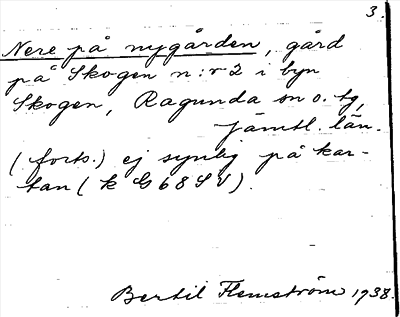 3.
Nere på nygården, gård
på Skogen n:r 2 i byn
Skogen, Ragunda sn o. tg,
Jämtl. län.
(forts.) ej synlig på kar-
tan (k G 68 SV).
Bertil Flemström 1938.